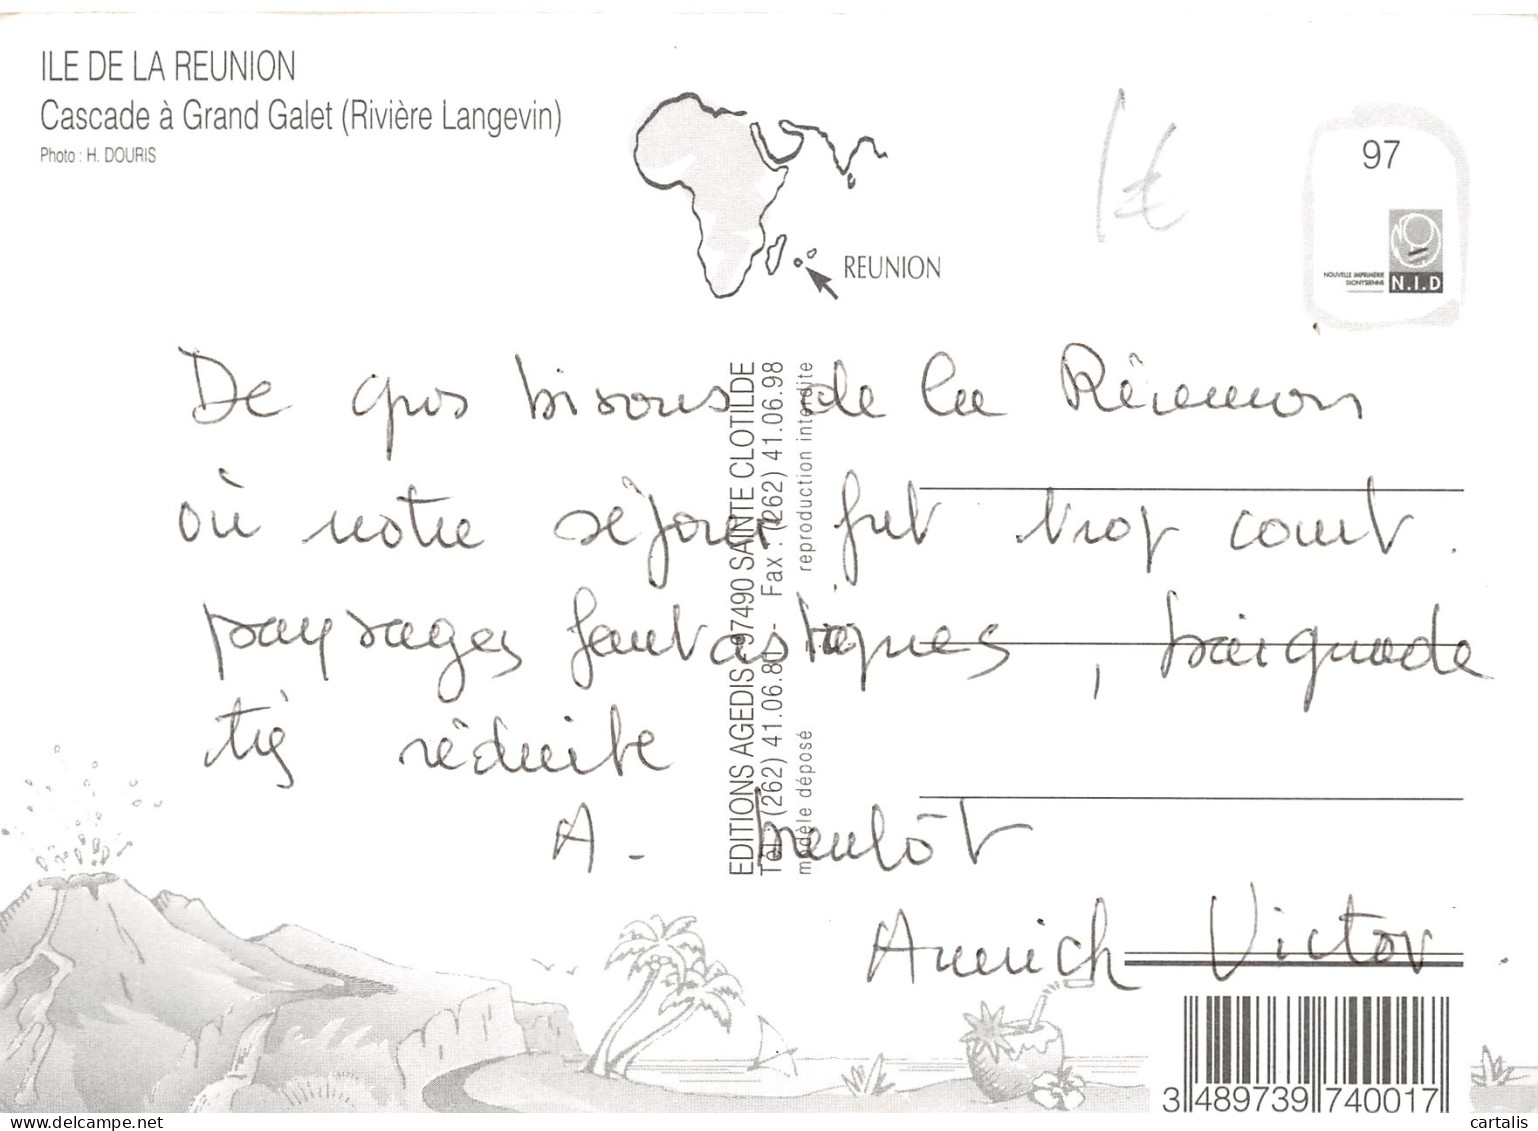 ILE DE LA REUNION
Cascade à Grand Galet (Rivière Langevin)
Photo : H. DOURIS
1€
97
NOUVELLE IMPRIMERIE
DIONYSIENNE
N.I.D
REUNION
De gros bisous de la Réunion
où notre séjour fut trop court.
paysages fantastiques, baignade
très réduite
A - bientôt
Annick Victor
EDITIONS AGEDIS 97490 SAINTE CLOTILDE
Tél. (262) 41.06.80 - Fax : (262) 41.06.98
modèle déposé reproduction interdite
3 489739 740017
cartalis